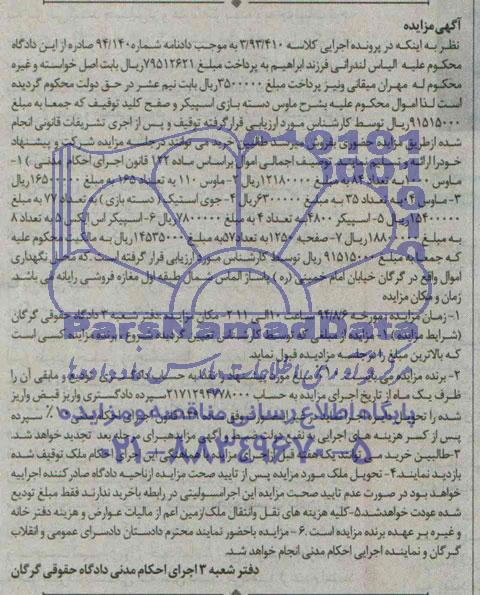 آگهی مزایده
نظر به اینکه در پرونده اجرایی کلاسه ۳/۹۳/۴۱۰ به موجب دادنامه شماره ۹۴/۱۴۰ صادره از این دادگاه
محکوم علیه الیاس لندرانی فرزند ابراهیم به پرداخت مبلغ ۷۹۵۱۲۶۲۱ ریال بابت اصل خواسته و غیره
محکوم له مهران میقانی ونیز پرداخت مبلغ ۳۵۰۰۰۰۰ ریال بابت نیم عشر در حق دولت محکوم گردیده
است لذا اموال محکوم علیه بشرح ماوس دسته بازی اسپیکر و صفح کلید توقیف که جمعا به مبلغ
۹۱۵۱۵۰۰۰ ریال توسط کارشناس مورد ارزیابی قرار گرفته توقیف و پس از اجری تشریفات قانونی انجام
شده ازطریق مزایده حضوری بفروش میرسد طالبین خرید می توانند درجلسه مزایده شرکت و پیشنهاد
خودرا ارائه و توصیف اجمالی اموال براساس ماده ۱۲۲ قانون اجرای احکام مدنی ) ۱-
ماوس ۱۰۰ به تعداد ۸۴ به مبلغ ۱۲۱۸۰۰۰۰ ریال ۲- ماوس ۱۱۰ به تعداد ۱۶۵ به مبلغ ۱۶۵۰۰۰۰۰ ریال
۳- ماوس ۰۴ به تعداد ۳۵ به مبلغ ۶۳۰۰۰۰۰ ریال ۴- جوی استیک ( دسته بازی ) به تعداد ۷۷ به مبلغ
۱۵۴۰۰۰۰۰ ریال ۵- اسپیکر ۴۸۰۰ به تعداد ۴ به مبلغ ۷۸۰۰۰۰۰ ریال ۶- اسپیکر اس ایکس ۵ به تعداد ۸
به مبلغ ۱۸۸۰۰۰۰۰ ریال ۷- صفحه ۱۲۵۰ به تعداد ۵۷ به مبلغ ۱۴۵۳۵۰۰۰ ریال به مالکیت محکوم علیه
که جمعا به مبلغ ۹۱۵۱۵۰۰۰ ریال توسط کارشناس مورد ارزیابی قرار گرفته است که محل نگهداری
اموال واقع در گرگان خیابان امام خمینی (ره ) پاساژ الماس شمال طبقه اول مغازه فروشی رایانه می باشد
زمان و مکان مزایده
۱- زمان مزایده بمورخه ۹۴/۸/۶ ساعت ۱۰ الی ۱۱ ۲- مکان مزایده دفتر شعبه ۳ دادگاه حقوقی گرگان
(شرایط مزایده ) ۱- مزایده از مبلغی که توسط کارشناس تعیین گردیده شروع و برنده مزایده کسی است
که بالاترین مبلغ را در جلسه مزایده قبول نماید.
۲- برنده مزایده می بایست ۱۰٪ مبلغ مورد پیشنهاد را نقدا به حساب دادگستری تودیع و مابقی آن را
ظرف یک ماه از تاریخ اجرای مزایده به حساب ۲۱۷۱۲۹۴۷۷۸۰۰۰ سپرده دادگستری واریز قبض واریز
شده را تحویل اجرا ۱۰٪ سپرده
پس از کسر هزینه های اجرایی به نفع دولت ضبط و آگهی مزایده برای مرحله بعد تجدید خواهد شد.
۳-طالبین خرید می توانند یک هفته قبل از اجرای مزایده با هماهنگی این اجرا احکام ملک توقیف شده
بازدید نمایند. ۴- تحویل ملک مورد مزایده پس از تایید صحت مزایده ازناحیه دادگاه صادر کننده اجراییه
خواهد بود در صورت عدم تایید صحت مزایده این اجرامسولیتی در رابطه باخرید ندارند فقط مبلغ تودیع
شده عودت خواهدشد. ۵-کلیه هزینه های نقل وانتقال ملک اززمین اعم از مالیات عوارض و هزینه دفتر خانه
و غیره بر عهده برنده مزایده است . ۶- مزایده باحضور نماینده محترم دادستان دادسرای عمومی و انقلاب
گرگان و نماینده اجرایی احکام مدنی انجام خواهد شد.
دفتر شعبه ۳ اجرای احکام مدنی دادگاه حقوقی گرگان
ParsNamadData
پایگاه اطلاع رسانی مناقصه و مزایده
۰۲۱-۸۸۳۴۹۶۷۰-۵